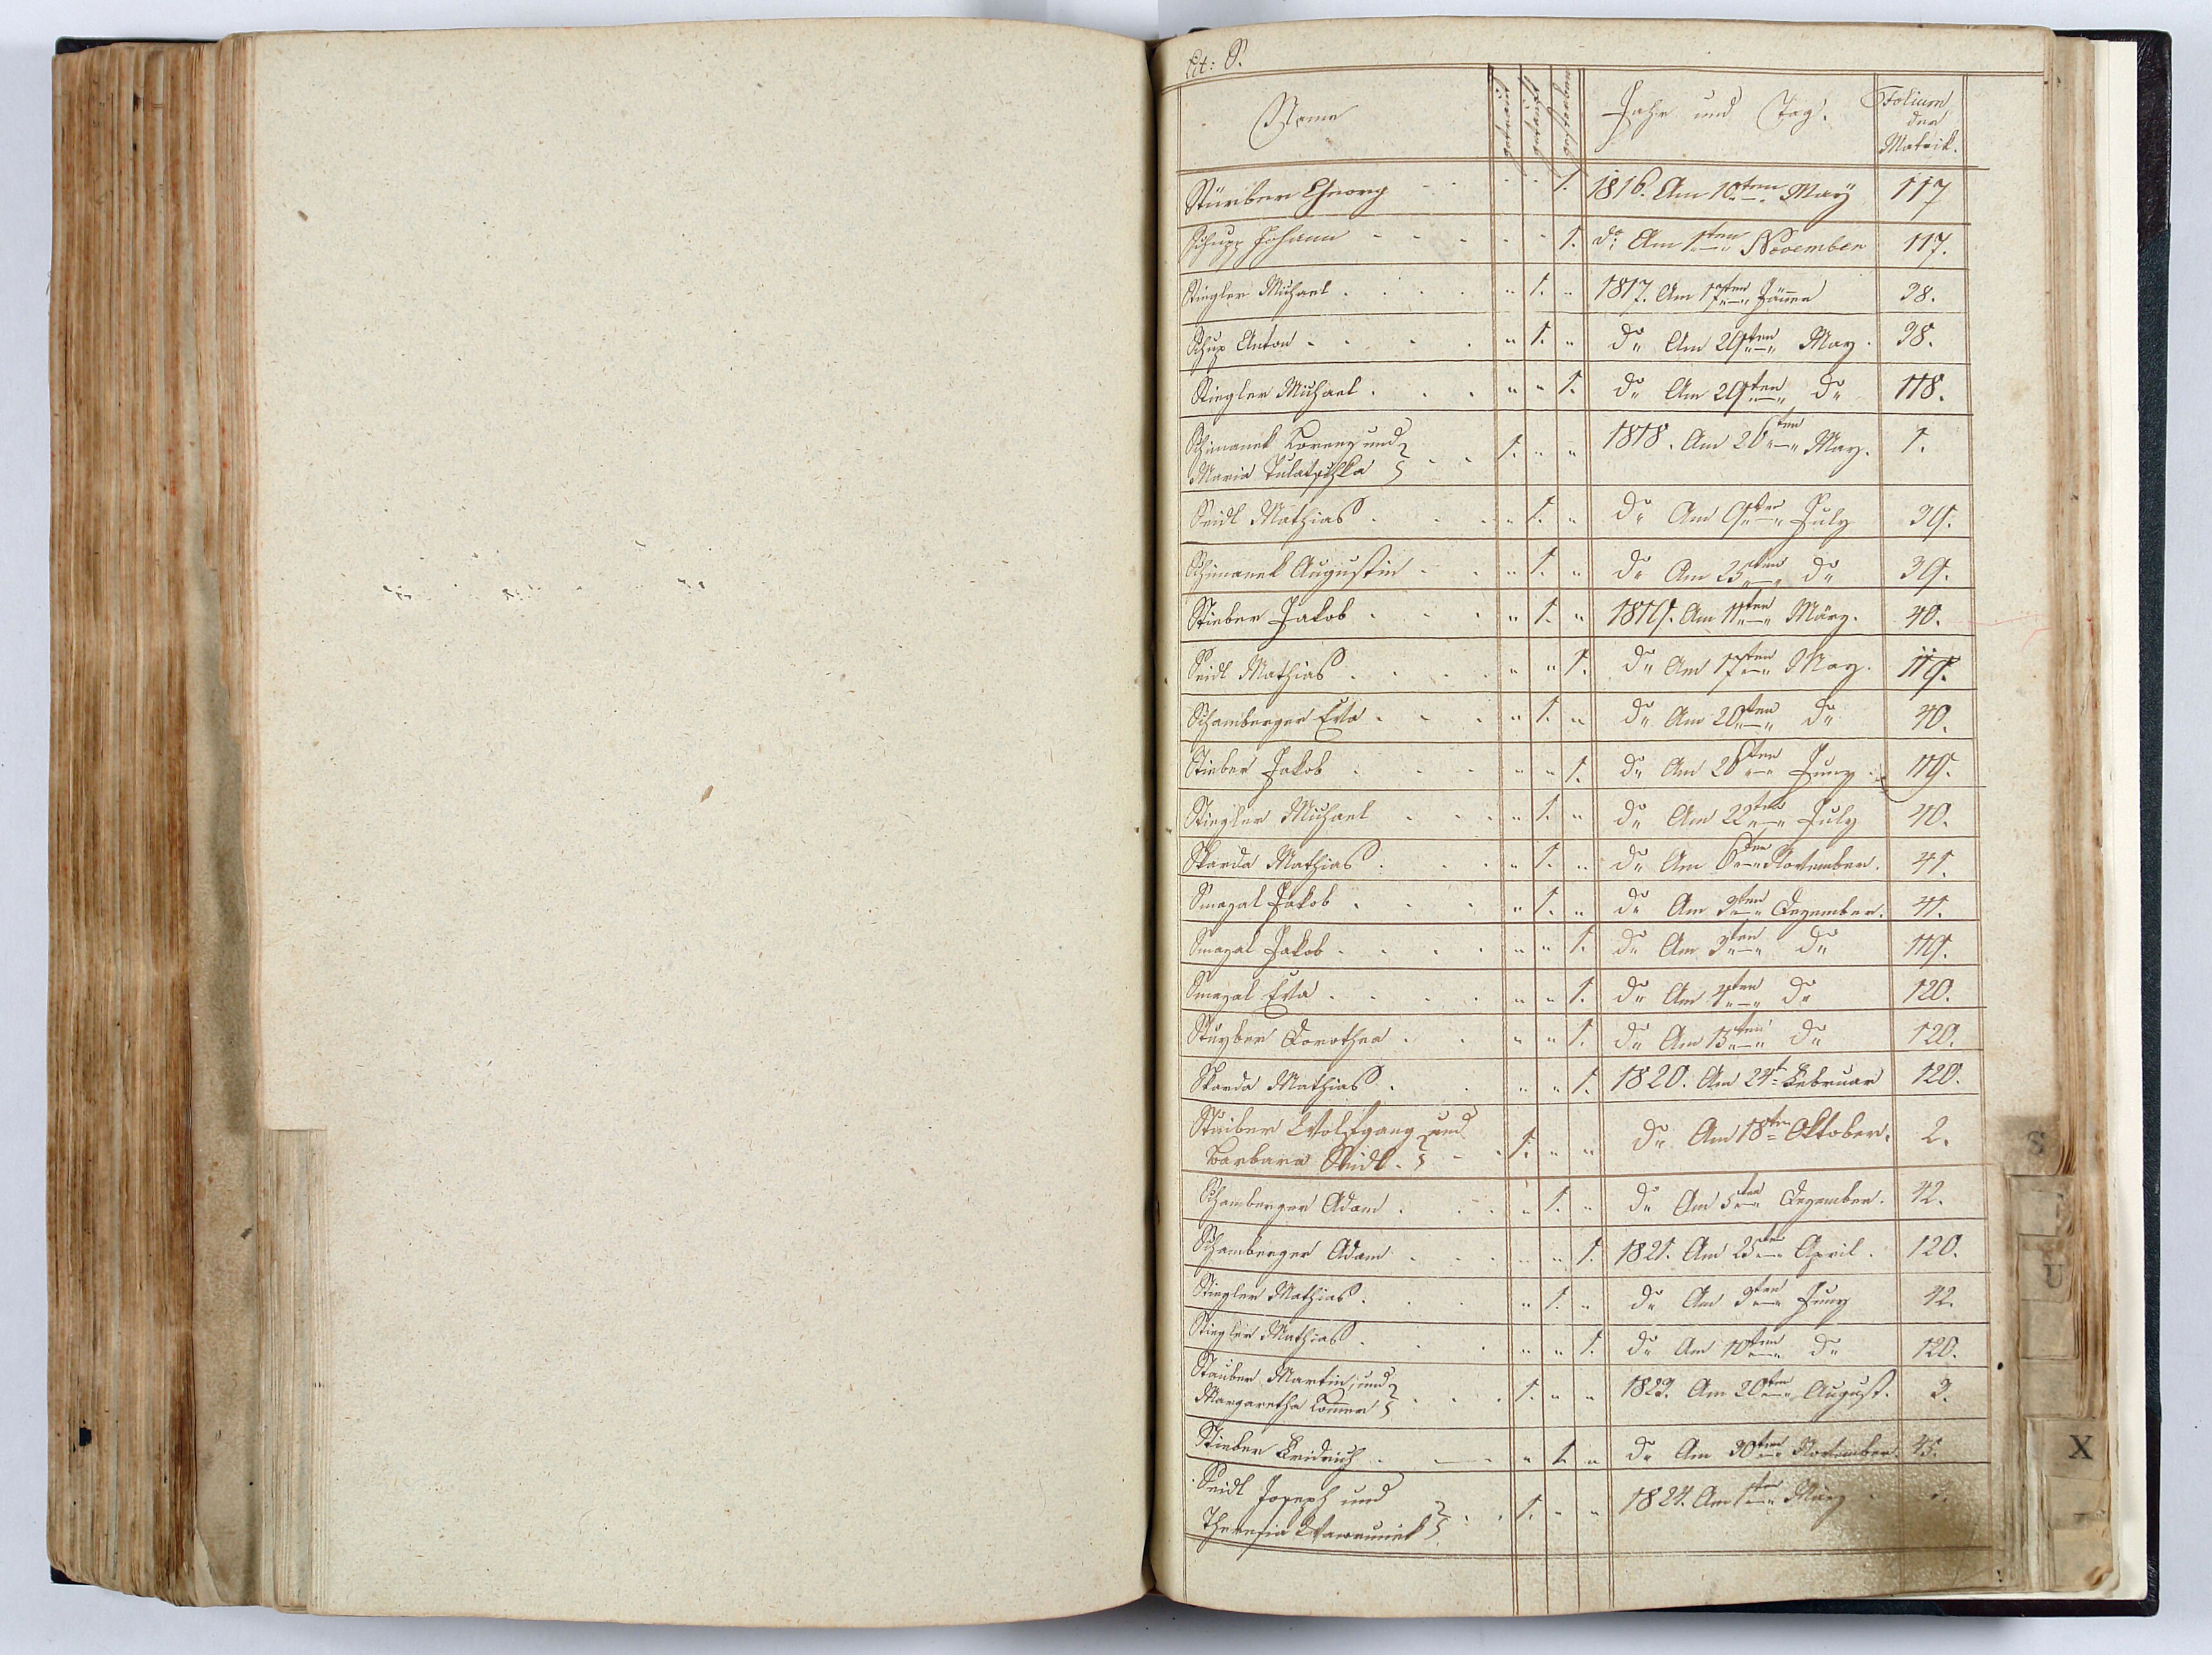 Lit: S.
Name getraut getauft gestorben Jahr und Tag. Folium
der
Matrik.
Stürber Georg - - - - 1. 1816. Am 10ten May 117
Schupp Johann - - - - - - 1. do: Am 1ten November 117.
Stiegler Michael . . . . " 1. " 1817. Am 17ten Jäner 38.
Schup Anton - - - . " 1. " do Am 29ten May. 38.
Stiegler Michael . . . " " 1. do Am 29ten do 118.
Schimanek Lorenz und
Maria Tulatschka } . . 1. " " 1818. Am 26ten May. 1.
Seidl Mathias . . . " 1. " do Am 9ten July 39.
Schimanek Augustin . . " 1. " do Am 25ten do 39.
Stieber Jakob . . . " 1. " 1819. Am 11ten März. 40.
Seidl Mathias . . . . " " 1. do Am 17ten May. 119.
Schamberger Eva . . . " 1. " do Am 20ten do 40.
Stieber Jakob . . . " " 1. do Am 26ten Juny. 119.
Stiegler Michael . . . " 1. " do Am 22ten July 40.
Skarda Mathias . . . " 1. " do Am 6ten November. 41.
Smazal Jakob . . . " 1. " do Am 3ten Dezember. 41.
Smazal Jakob . . . . " " 1. do Am 3ten do 119.
Smazal Eva . . . . " " 1. do Am 4ten do 120.
Stuyber Dorothea . . " " 1. do Am 15ten do 120.
Skarda Mathias . . " " 1. 1820. Am 24t Februar 120.
Stuiber Wolfgang und
Barbara Seidl. } - . 1. " " do Am 18ten Oktober. 2.
Schamberger Adam . . . " 1. " do Am 5ten Dezember. 42.
Schamberger Adam . . . " " 1. 1821. Am 25ten April. 120.
Stiegler Mathias . . . " 1. " do Am 3ten Juny 42.
Stiegler Mathias . . . " " 1. do Am 10ten do 120.
Stauber Martin, und
Margaretha } . . . 1. " " 1823. Am 20ten August. 3.
Stieber Fridrich . . " 1. " do Am 30ten November. 45.
Seidl Joseph und
Theresia } . . 1. " " 1824. Am 1ten März
S
U
X